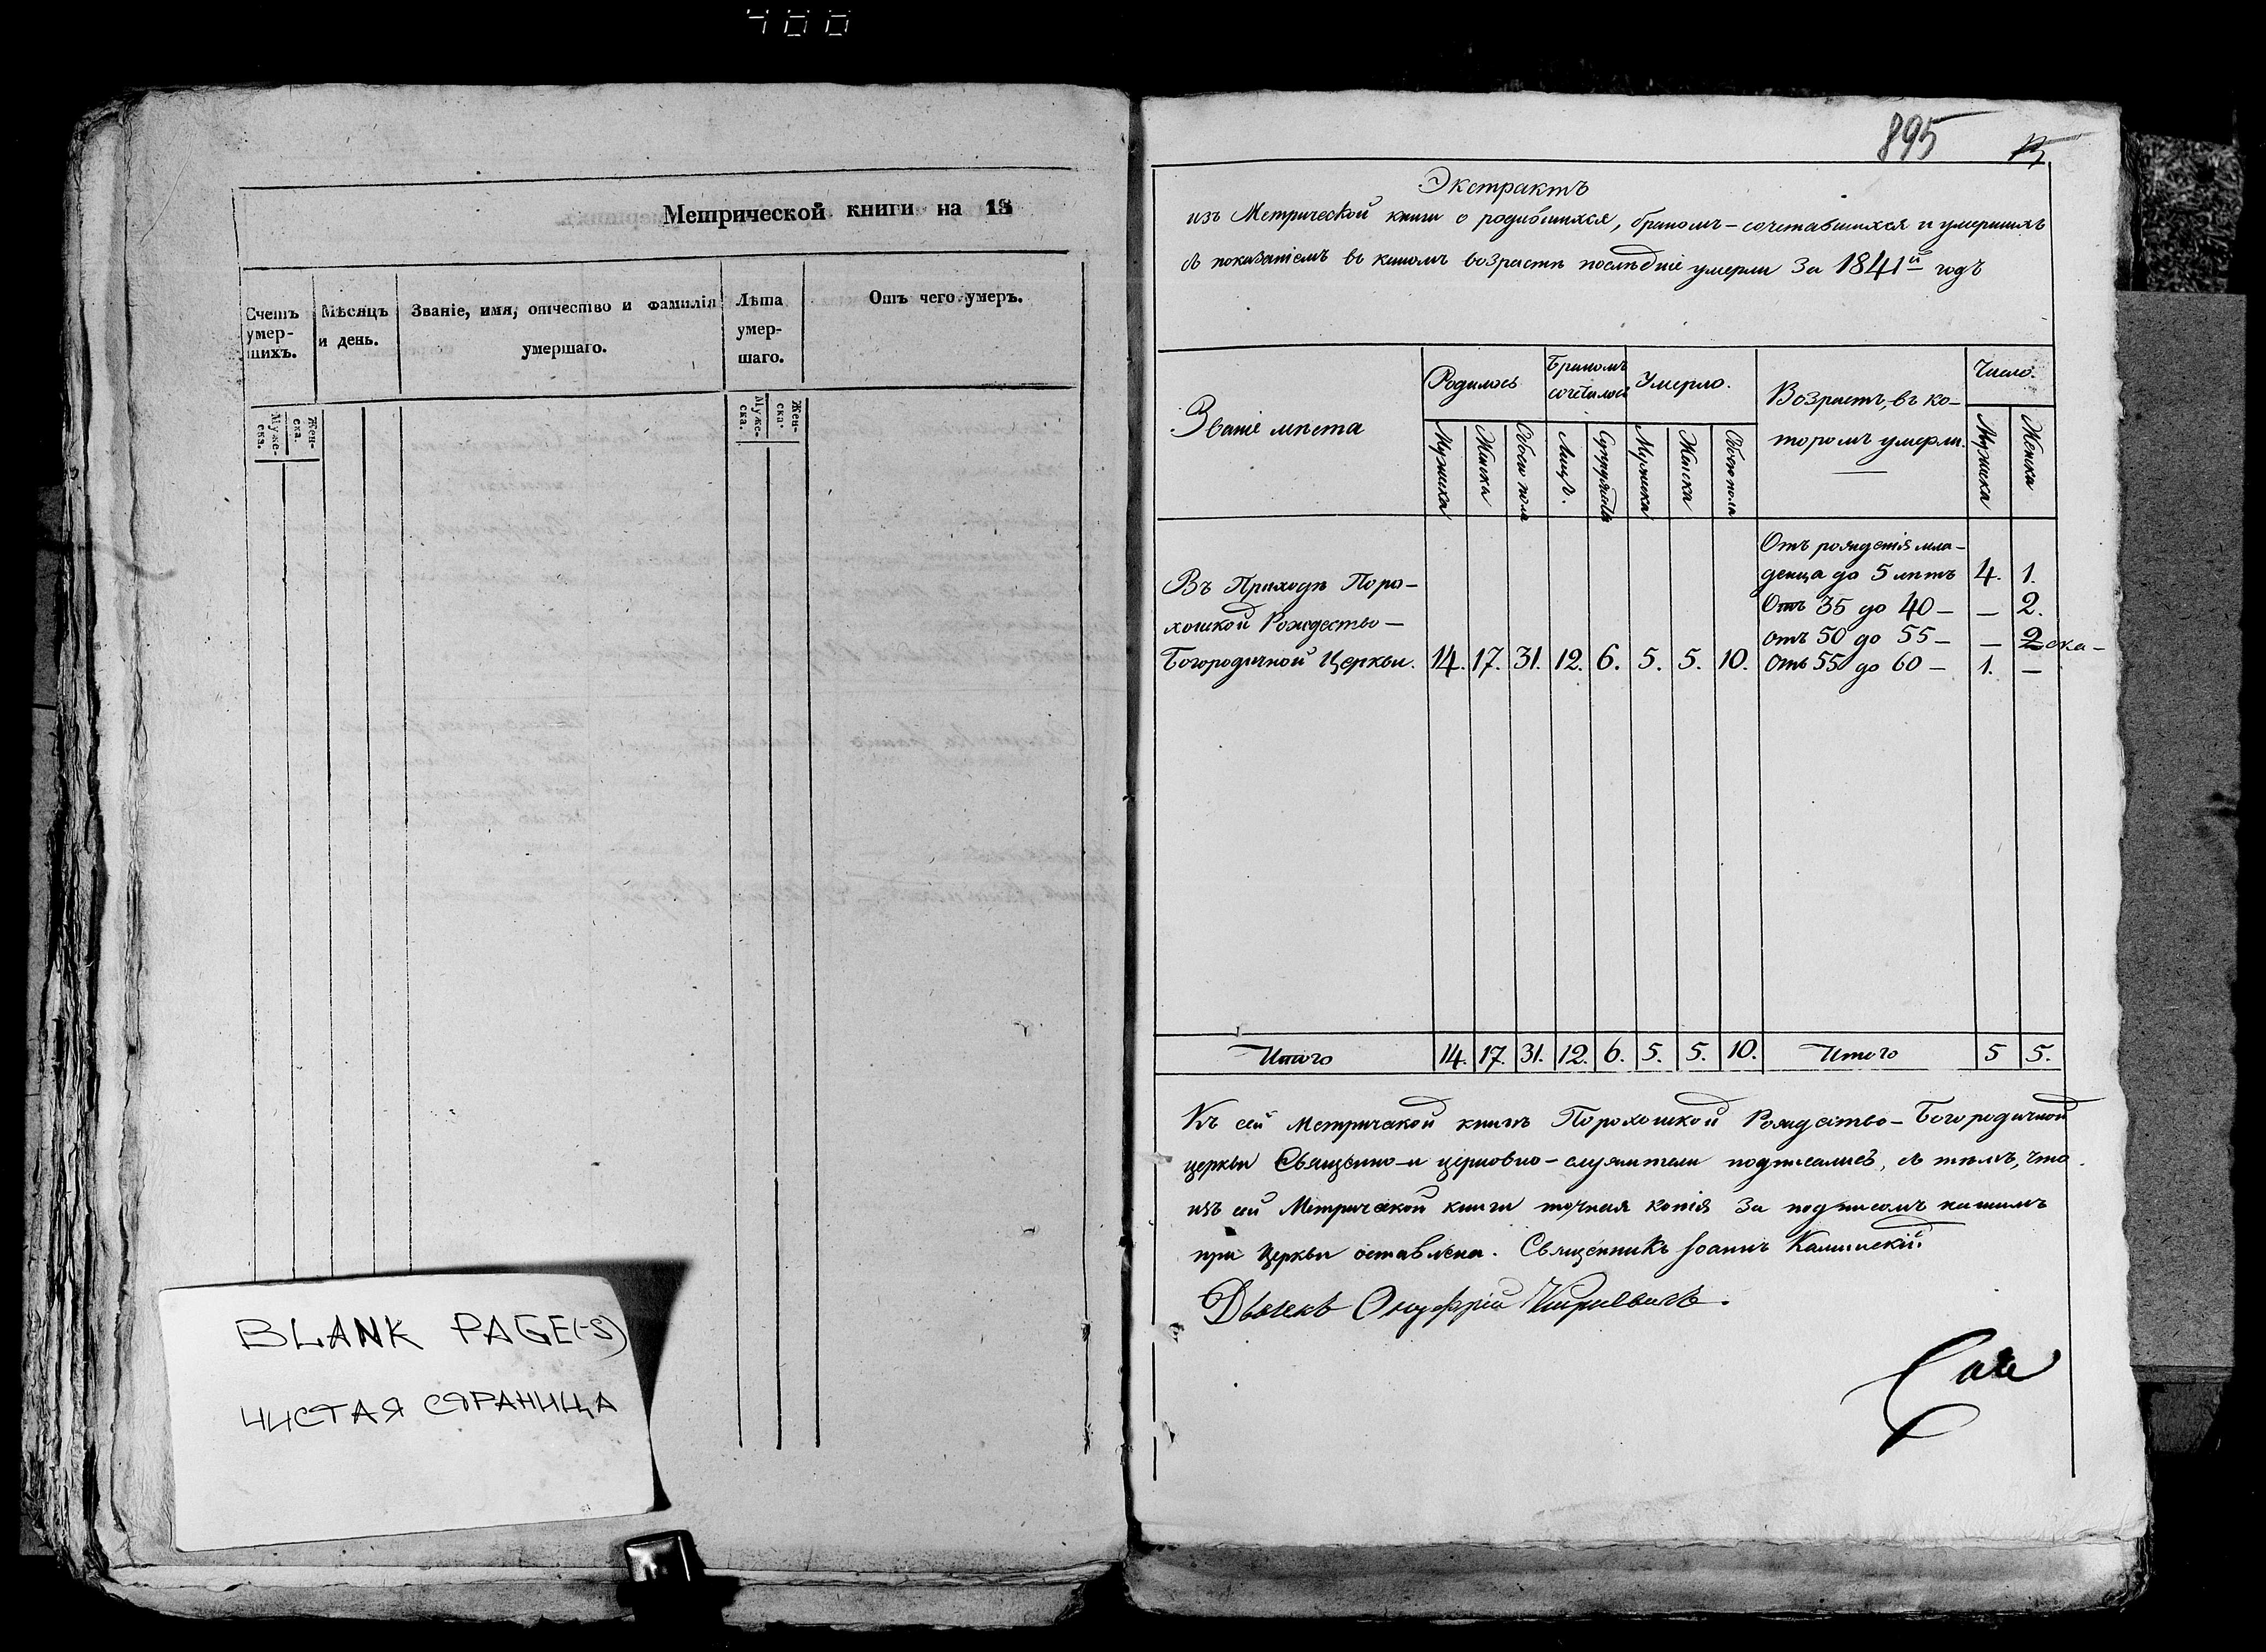 400
Метрической книги на 18
Счетъ умер-шихъ.
Мѣсяцъ и день.
Званіе, имя, отчество и фамилія умершаго.
Лѣта умер-шаго.
Отъ чего умеръ.
Муже-ска.
Жен-ска.
Муже-ска.
Жен-ска.
BLANK PAGE(-S)
ЧИСТАЯ СТРАНИЦА
895
Экстрактъ
изъ Метрической книги о родившихся, бракомъ-сочетавшихся и умершихъ
съ показаніемъ въ какомъ возрастѣ послѣдніе умерли за 1841й годъ
Званіе мѣста
Родилось
Бракомъ сочеталось
Умерло.
Возрастъ, въ ко-
торомъ умерли.
Число.
Мужеска
Женска
Обоего пола
Лицъ.
Супружствъ
Мужеска
Женска
Обоего пола
Мужеска
Женска
Отъ рожденія мла-
денца до 5 лѣтъ 4. 1.
Въ Приходѣ Поро-
Отъ 35 до 40 — — 2.
хошкой Рождество-
отъ 50 до 55 — — 2
Богородичной Церкви. 14. 17. 31. 12. 6. 5. 5. 10. Отъ 55 до 60 — 1. —
Итого 14. 17. 31. 12. 6. 5. 5. 10. Итого 5 5.
Къ сей Метрической книгѣ Порохошкой Рождество-Богородичной
церкви Священно-и церковно-служители подписались, съ тѣмъ, что
изъ сей Метрической книги точная копія за подписомъ нашимъ
при Церкви оставлена. Священникъ Іоаннъ Калинскій
Дьячекъ Онуфрій